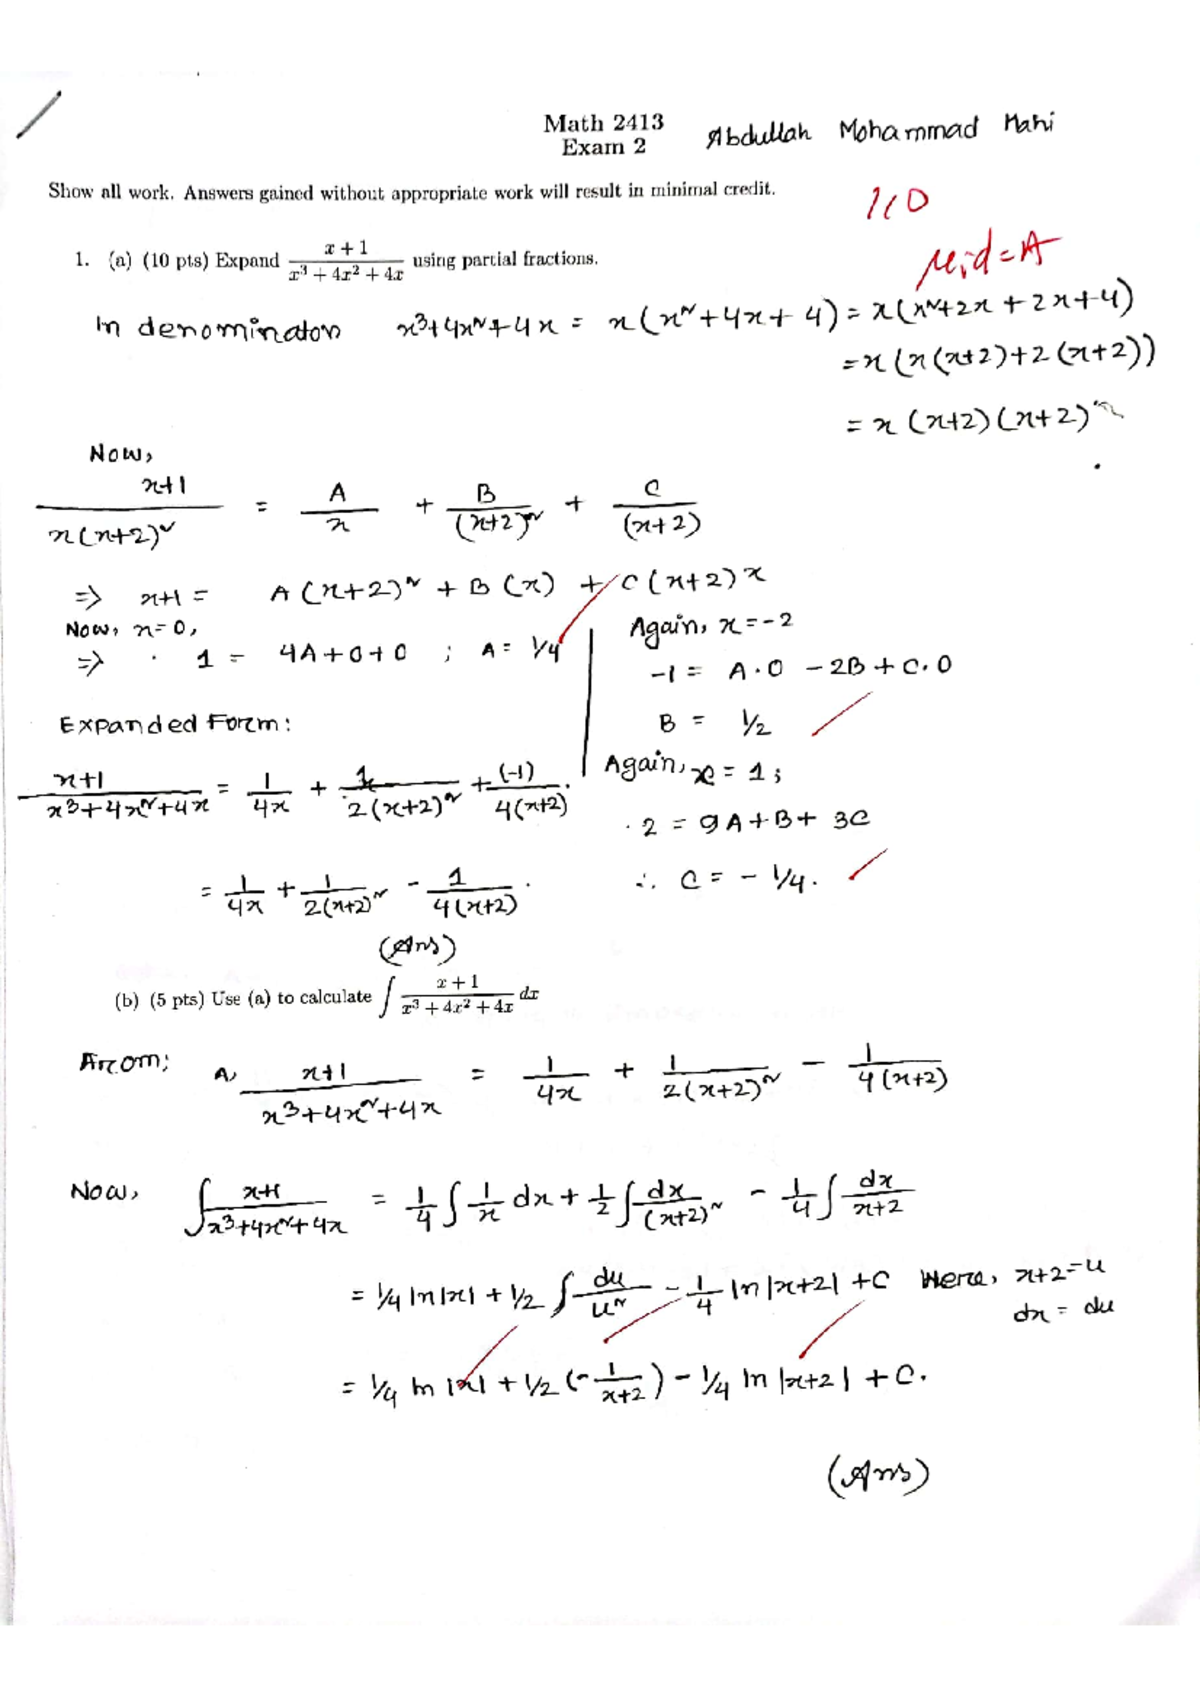 Math 2413
Exam 2
Abdullah Mohammad Mahi
Show all work. Answers gained without appropriate work will result in minimal credit.
110
Mid=A
1. (a) (10 pts) Expand (x + 1)/(x³ + 4x² + 4x) using partial fractions.
In denominator x³+4x²+4x = x(x²+4x+4) = x(x²+2x+2x+4)
=x(x(x+2)+2(x+2))
= x(x+2)(x+2)
Now,
(x+1)/(x(x+2)²) = A/x + B/(x+2)² + C/(x+2)
=> x+1 = A(x+2)² + B(x) + C(x+2)x
Now, x=0,
=> 1 = 4A+0+0 ; A= 1/4
Again, x=-2
-1 = A·0 -2B + C·0
B = 1/2
Again, x = 1;
2 = 9A+B+3C
∴ C = -1/4.
Expanded Form:
(x+1)/(x³+4x²+4x) = 1/(4x) + 1/(2(x+2)²) + (-1)/(4(x+2)).
= 1/(4x) + 1/(2(x+2)²) - 1/(4(x+2)).
(Ans)
(b) (5 pts) Use (a) to calculate ∫ (x + 1)/(x³ + 4x² + 4x) dx
From; A, (x+1)/(x³+4x²+4x) = 1/(4x) + 1/(2(x+2)²) - 1/(4(x+2))
Now, ∫ (x+1)/(x³+4x²+4x) = 1/4 ∫ 1/x dx + 1/2 ∫ dx/(x+2)² - 1/4 ∫ dx/(x+2)
= 1/4 ln|x| + 1/2 ∫ du/u² - 1/4 ln|x+2| +C Here, x+2=u
dx = du
= 1/4 ln|x| + 1/2 (-1/(x+2)) - 1/4 ln|x+2| + C.
(Ans)